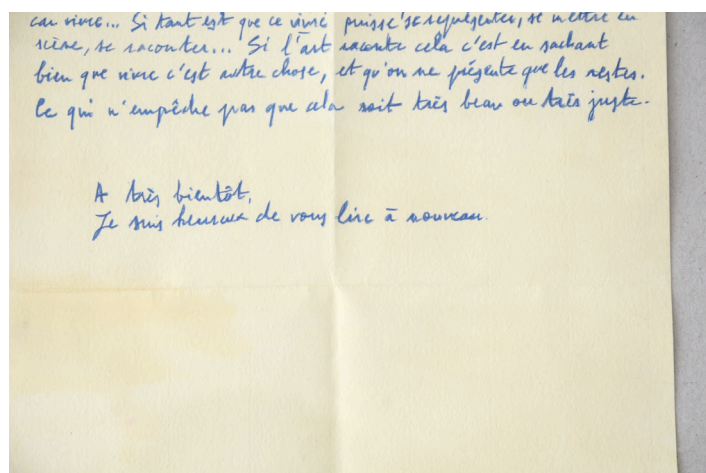 car vivre... Si tant est que ce vivre puisse se représenter, se mettre en
scène, se raconter... Si l'art raconte cela c'est en sachant
bien que vivre c'est autre chose, et qu'on ne présente que les restes.
Ce qui n'empêche pas que cela soit très beau ou très juste.
A très bientôt,
Je suis heureux de vous lire à nouveau.